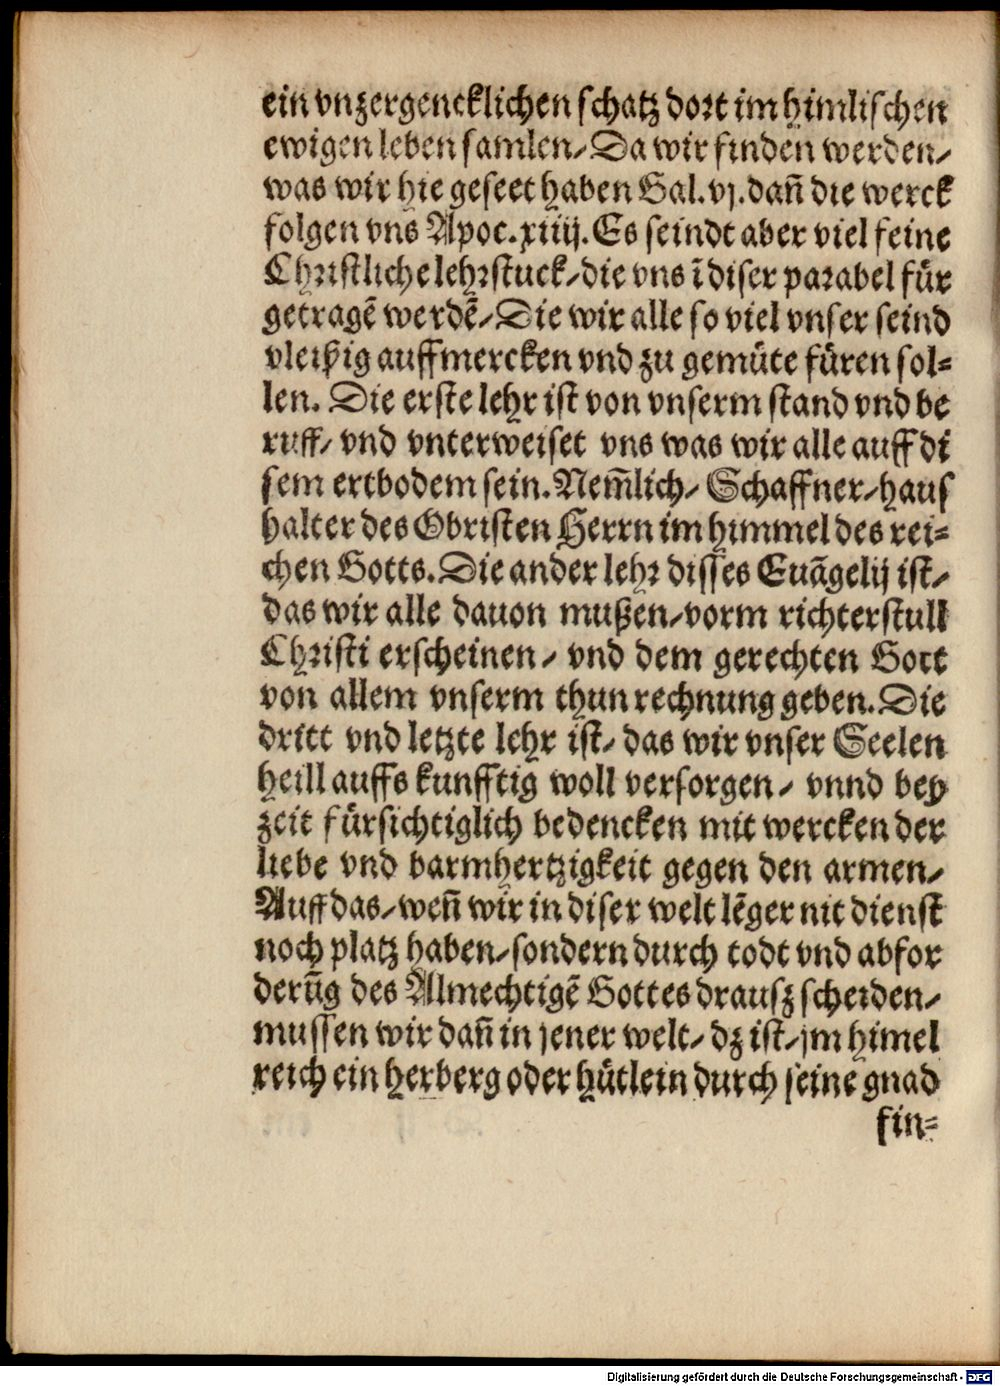 ein vnzergencklichen schatz dort im himlischen
ewigen leben samlen/ Da wir finden werden/
was wir hie geseet haben Gal. vj. dañ die werck
folgen vns Apoc. xiiij. Es seindt aber viel feine
Christliche lehrstuck/ die vns ī diser parabel für
getragē werdē/ Die wir alle so viel vnser seind
vleißig auffmercken vnd zu gemüte füren sol-
len. Die erste lehr ist von vnserm stand vnd be
ruff/ vnd vnterweiset vns was wir alle auff di
sem ertbodem sein. Nem̃lich/ Schaffner/ haus
halter des Obristen Herrn im himmel des rei-
chen Gotts. Die ander lehr disses Euāgelij ist/
das wir alle dauon mußen/ vorm richterstull
Christi erscheinen/ vnd dem gerechten Gott
von allem vnserm thun rechnung geben. Die
dritt vnd letzte lehr ist/ das wir vnser Seelen
heill auffs kunfftig woll versorgen/ vnnd bey
zeit fürsichtiglich bedencken mit wercken der
liebe vnd barmhertzigkeit gegen den armen/
Auff das/ weñ wir in diser welt lēger nit dienst
noch platz haben/ sondern durch todt vnd abfor
derūg des Almechtigē Gottes drausz scheiden/
mussen wir dañ in jener welt/ dz ist/ jm himel
reich ein herberg oder hütlein durch seine gnad
fin-
Digitalisierung gefördert durch die Deutsche Forschungsgemeinschaft - DFG